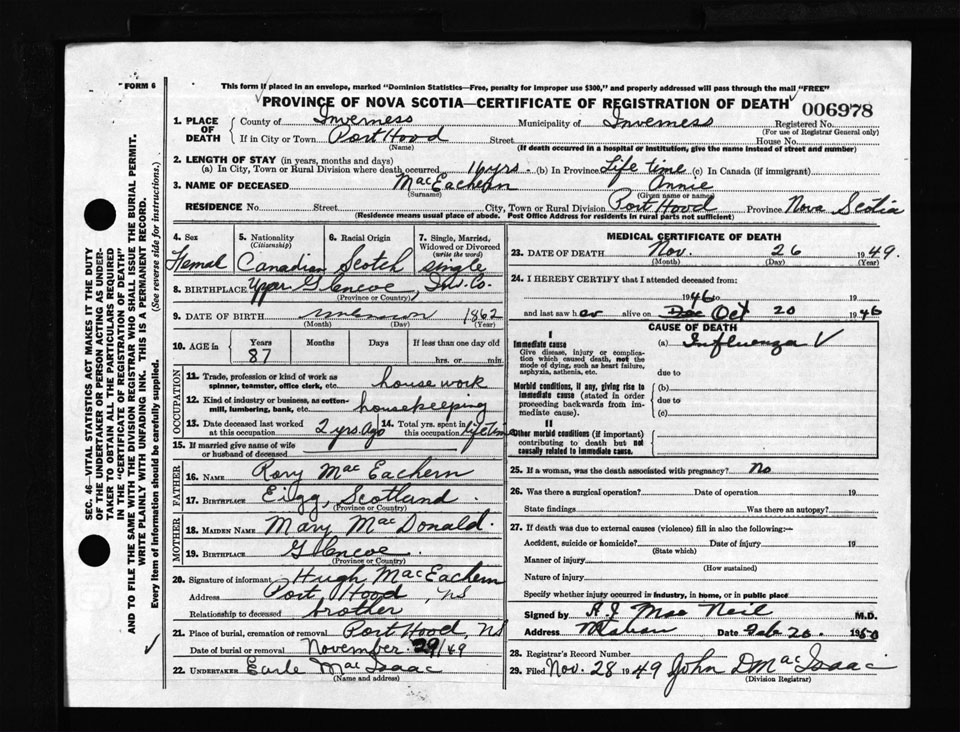 FORM 6
This form if placed in an envelope, marked "Dominion Statistics—Free, penalty for improper use $300," and properly addressed will pass through the mail "FREE"
PROVINCE OF NOVA SCOTIA—CERTIFICATE OF REGISTRATION OF DEATH
006978
1. PLACE OF DEATH
County of Inverness Municipality of Inverness Registered No.
(For use of Registrar General only)
If in City or Town Port Hood Street House No.
(Name) (If death occurred in a hospital or institution, give the name instead of street and number)
2. LENGTH OF STAY (in years, months and days)
(a) In City, Town or Rural Division where death occurred 16 yrs. (b) In Province Life time (c) In Canada (if immigrant)
3. NAME OF DECEASED MacEachern Annie
(Surname) (Given name or names)
RESIDENCE No. Street City, Town or Rural Division Port Hood Province Nova Scotia
(Residence means usual place of abode. Post Office Address for residents in rural parts not sufficient)
SEC. 46—VITAL STATISTICS ACT MAKES IT THE DUTY
OF THE UNDERTAKER OR PERSON ACTING AS UNDER-
TAKER TO OBTAIN ALL THE PARTICULARS REQUIRED
IN THE "CERTIFICATE OF REGISTRATION OF DEATH"
AND TO FILE THE SAME WITH THE DIVISION REGISTRAR WHO SHALL ISSUE THE BURIAL PERMIT.
WRITE PLAINLY WITH UNFADING INK. THIS IS A PERMANENT RECORD.
Every item of Information should be carefully supplied. (See reverse side for instructions.)
4. Sex
Femal
5. Nationality
(Citizenship)
Canadian
6. Racial Origin
Scotch
7. Single, Married,
Widowed or Divorced
(write the word)
single
8. BIRTHPLACE Upper Glencoe, Inv. Co.
(Province or Country)
9. DATE OF BIRTH unknown 1862
(Month) (Day) (Year)
10. AGE in
Years Months Days If less than one day old
87 hrs. or min.
OCCUPATION
11. Trade, profession or kind of work as
spinner, teamster, office clerk, etc. house work
12. Kind of industry or business, as cotton-
mill, lumbering, bank, etc. housekeeping
13. Date deceased last worked
at this occupation 2 yrs ago
14. Total yrs. spent in
this occupation lifetime
15. If married give name of wife
or husband of deceased
FATHER
16. NAME Rory MacEachern
17. BIRTHPLACE Eigg, Scotland.
(Province or Country)
MOTHER
18. MAIDEN NAME Mary MacDonald.
19. BIRTHPLACE Glencoe.
(Province or Country)
20. Signature of informant Hugh MacEachern
Address Port Hood, NS
Relationship to deceased brother
21. Place of burial, cremation or removal Port Hood, NS
Date of burial or removal November 29/49
22. UNDERTAKER Earle MacIsaac
(Name and address)
MEDICAL CERTIFICATE OF DEATH
23. DATE OF DEATH Nov. 26 1949.
(Month) (Day) (Year)
24. I HEREBY CERTIFY that I attended deceased from:
1946 to 19
and last saw her alive on Dec Oct 20 1946
CAUSE OF DEATH
I
Immediate cause
Give disease, injury or complica-
tion which caused death, not the
mode of dying, such as heart failure,
asphyxia, asthenia, etc.
(a) Influenza V
due to
Morbid conditions, if any, giving rise to
immediate cause (stated in order
proceeding backwards from im-
mediate cause).
(b)
due to
(c)
II
Other morbid conditions (if important)
contributing to death but not
causally related to immediate cause.
25. If a woman, was the death associated with pregnancy? No
26. Was there a surgical operation? Date of operation 19
State findings Was there an autopsy?
27. If death was due to external causes (violence) fill in also the following:—
Accident, suicide or homicide? Date of injury 19
(State which)
Manner of injury
(How sustained)
Nature of injury
Specify whether injury occurred in industry, in home, or in public place
Signed by A.J. Mac Neil M.D.
Address Mabou Date Feb 20. 1950
28. Registrar's Record Number
29. Filed Nov. 28 1949 John D MacIsaac
(Division Registrar)